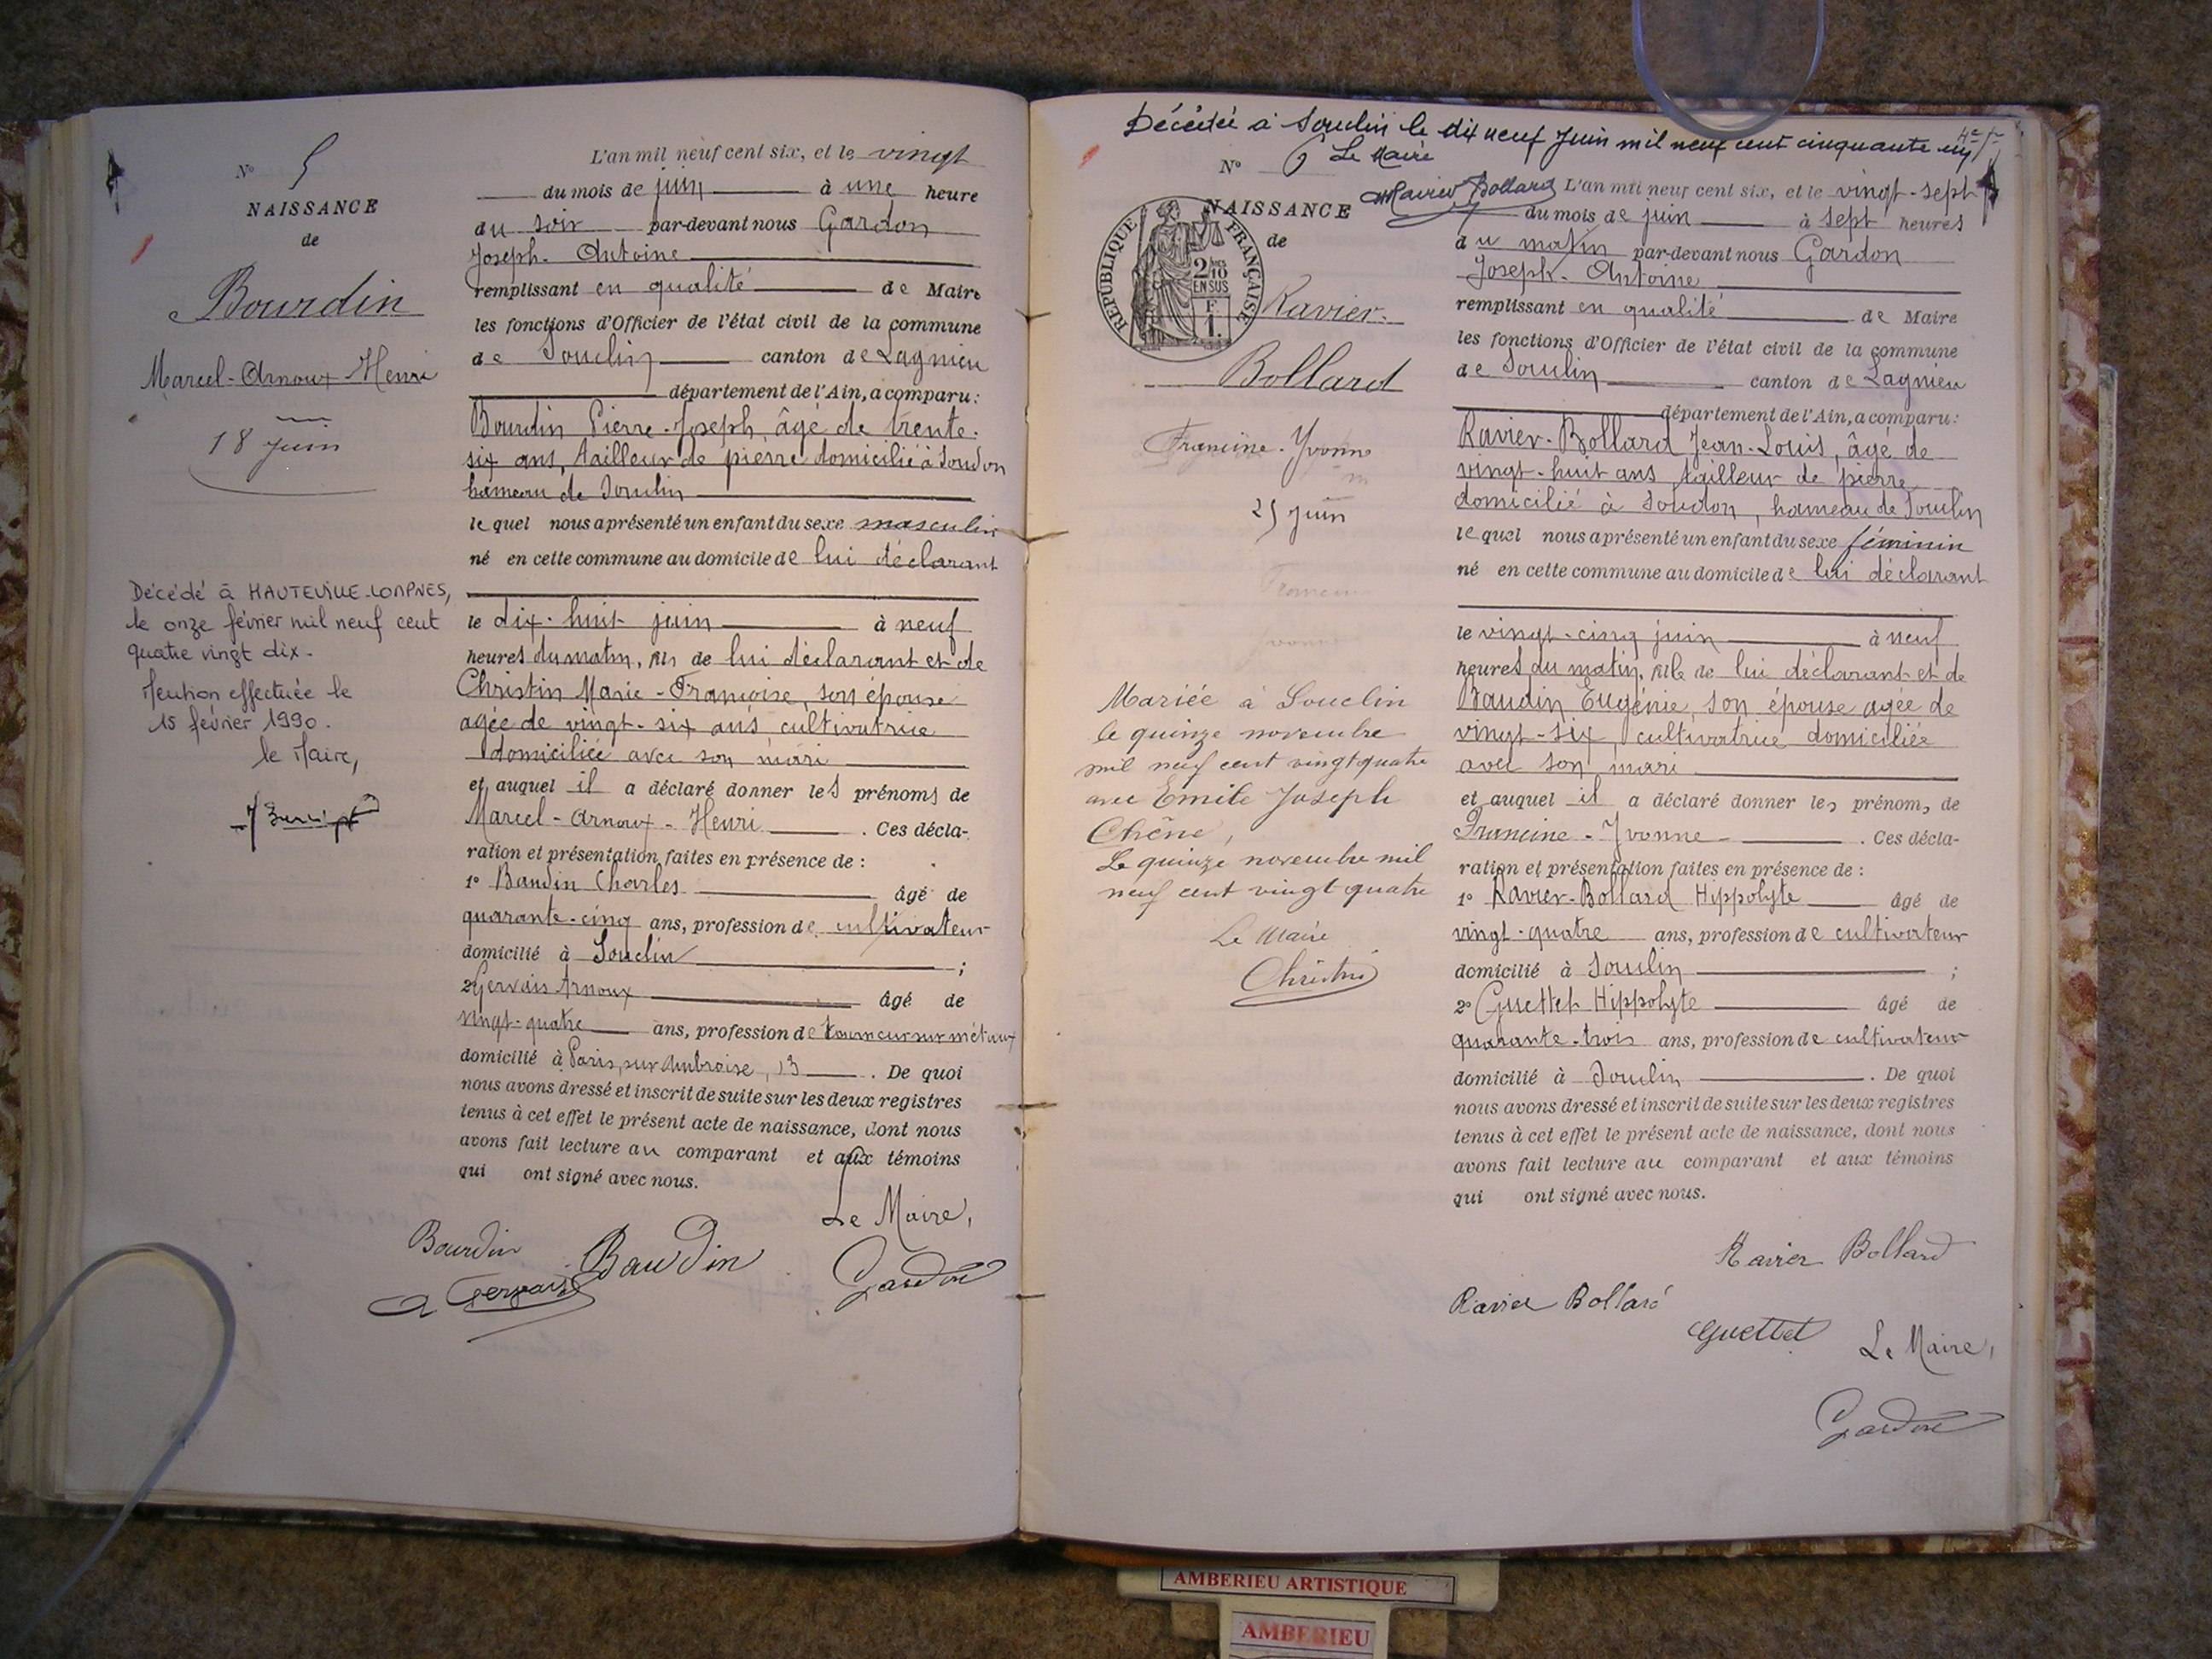 Nº 5
NAISSANCE
de
Bourdin
Marcel-Arnoux-Henri
18 juin
Décédé à HAUTEVILLE-LOMPNES,
le onze février mil neuf cent
quatre vingt dix.
Mention effectuée le
15 février 1990.
le Maire,
L'an mil neuf cent six, et le vingt
du mois de juin à une heure
du soir par-devant nous Gardon
Joseph-Antoine
remplissant en qualité de Maire
les fonctions d'Officier de l'état civil de la commune
de Souclin canton de Lagnieu
département de l'Ain, a comparu:
Bourdin Pierre-Joseph, âgé de trente-
six ans, tailleur de pierre domicilié à Soudon
hameau de Souclin
lequel nous a présenté un enfant du sexe masculin
né en cette commune au domicile de lui déclarant
le dix-huit juin à neuf
heures du matin, fils de lui déclarant et de
Christin Marie-Françoise, son épouse
agée de vingt-six ans, cultivatrice
domiciliée avec son mari
et auquel il a déclaré donner les prénoms de
Marcel-Arnoux-Henri. Ces décla-
ration et présentation faites en présence de :
1º Baudin Charles âgé de
quarante-cinq ans, profession de cultivateur
domicilié à Souclin ;
2º Gervais Arnoux âgé de
vingt-quatre ans, profession de tourneur sur métaux
domicilié à Paris, rue Ambroise, 13. De quoi
nous avons dressé et inscrit de suite sur les deux registres
tenus à cet effet le présent acte de naissance, dont nous
avons fait lecture au comparant et aux témoins
qui ont signé avec nous.
Le Maire,
Bourdin Baudin Gardon
A Gervais
Décédée à Souclin le dix neuf Juin mil neuf cent cinquante un
Le Maire
Nº 6
Ravier Bollard
NAISSANCE
de
RÉPUBLIQUE FRANÇAISE
2/10
EN SUS
F
1.
Ravier-
Bollard
Francine-Yvonne
25 juin
Mariée à Souclin
le quinze novembre
mil neuf cent vingt quatre
avec Emile Joseph
Chêne,
Le quinze novembre mil
neuf cent vingt quatre
Le Maire
Christin
L'an mil neuf cent six, et le vingt-sept
du mois de juin à sept heures
du matin par-devant nous Gardon
Joseph-Antoine
remplissant en qualité de Maire
les fonctions d'Officier de l'état civil de la commune
de Souclin canton de Lagnieu
département de l'Ain, a comparu:
Ravier-Bollard Jean-Louis, âgé de
vingt-huit ans tailleur de pierre
domicilié à Soudon, hameau de Souclin
lequel nous a présenté un enfant du sexe féminin
né en cette commune au domicile de lui déclarant
le vingt-cinq juin à neuf
heures du matin, fille de lui déclarant et de
Baudin Eugénie, son épouse agée de
vingt-six, cultivatrice domiciliée
avec son mari
et auquel il a déclaré donner les prénoms de
Francine-Yvonne. Ces décla-
ration et présentation faites en présence de :
1º Ravier-Bollard Hippolyte âgé de
vingt-quatre ans, profession de cultivateur
domicilié à Souclin ;
2º Guettet Hippolyte âgé de
quarante-trois ans, profession de cultivateur
domicilié à Souclin. De quoi
nous avons dressé et inscrit de suite sur les deux registres
tenus à cet effet le présent acte de naissance, dont nous
avons fait lecture au comparant et aux témoins
qui ont signé avec nous.
Ravier Bollard
Ravier Bollard
Guettet Le Maire,
Gardon
AMBERIEU ARTISTIQUE
AMBERIEU